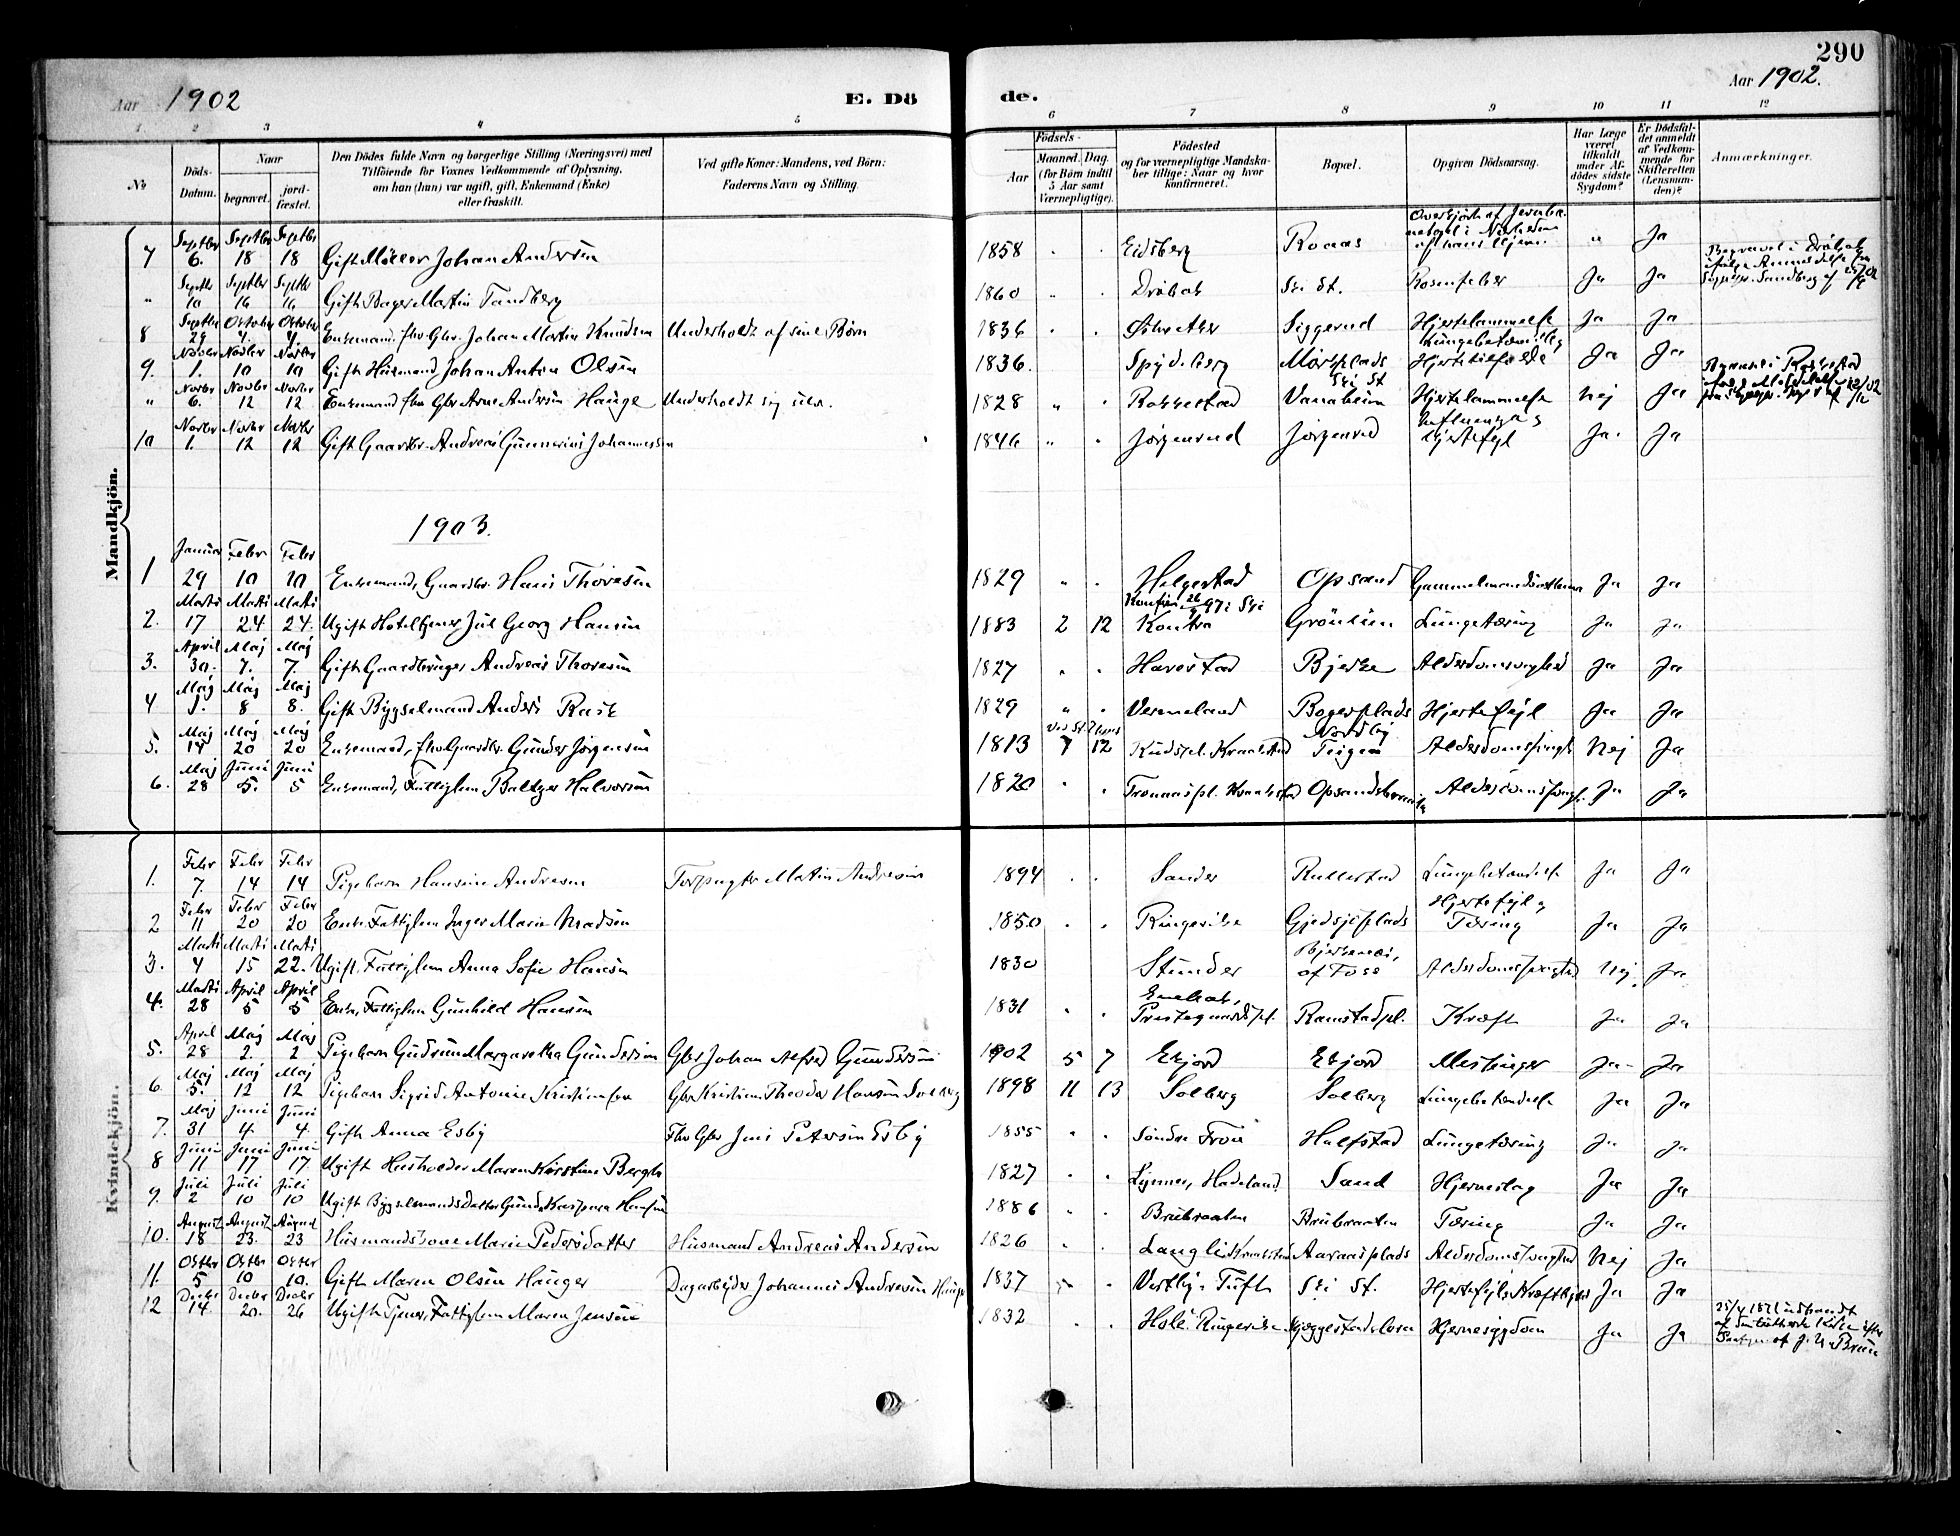 290
Aar 1902
E. Dö
de.
Aar 1902.
1 2 3 4 5 6 7 8 9 10 11 12
No
Döds-Datum.
Naar
begravet.
jord-fæstet.
Den Dödes fulde Navn og borgerlige Stilling (Næringsvei) med
Tilföiende for Voxnes Vedkommende af Oplysning,
om han (hun) var ugift, gift, Enkemand (Enke)
eller fraskilt.
Ved gifte Koner: Mandens, ved Börn:
Faderens Navn og Stilling.
Födsels-
Aar
Maaned. Dag.
(for Börn indtil
5 Aar samt
Værnepligtige).
Födested
og for værnepligtige Mandska-
ber tillige: Naar og hvor
konfirmeret.
Bopæl.
Opgiven Dödsaarsag.
Har Læge
været
tilkaldt
under Af-
dödes sidste
Sygdom?
Er Dödsfal-
det anmeldt
af Vedkom-
mende for
Skifteretten
(Lensman-
den)?
Anmærkninger.
Mandkjön.
7 Septbr 6. Septbr 18 Septbr 18 Gift Möller Johan Andersen 1858 Eidsberg Roaas af hans Hjem. " Ja
" Septbr 10 Septbr 16 Septbr 16 Gift Bager Martin Tandberg 1860 " Dröbak Ski St. Rosenfeber Ja Ja Begravet i Dröbak
8 Septbr 29 October 4. October 4. Enkemand, fhv Gbr. Johan Martin Knudsen Underholdt af sine Børn 1836 Siggerud Hjertelammelse Ja Ja
9. Novbr 1. Novbr 10 Novbr 10 Gift Husmand Johan Anton Olsen 1836. Spydeberg Lungebetændelse Hjertetilfælde Ja Ja
" Novbr 6. Novbr 12 Novbr 12 Enkemand fhv Gbr Arne Andersen Hauge Underholdt sig selv. 1828 " Rakkestad Ski St Vanaheim Hjertelammelse Nej Ja
10 Novbr 1. Novbr 12 Novbr 12 Gift Gaardbr. Andreas Gunnerius Johannessen 1846 " Jörgenrud Jörgenrud Influenza & Hjertefejl Ja. Ja
1903.
1 Januar 29 Febr 10 Febr 10 Enkemand, Gaardbr. Hans Thoresen 1829 " Helgestad Opsand Ja Ja
2. Marts 17 Marts 24 Marts 24. Ugift Hoteltjener Jul Georg Hansen 1883 2 12 Kontra Grönlien Lungetæring Ja Ja
3. April 30. Maj 7. Maj 7. Gift Gaardbruger Andreas Thoresen 1827 Harestad Bjerke Alderdomssvaghed Ja Ja
4 Maj 1. Maj 8 Maj 8. Gift Bygselmand Anders Rask 1829 " Vermeland Bogerplads Hjertefejl Ja Ja
5. Maj 14 Maj 20 Maj 20 Enkemand, fhv Gaardbr. Gunder Jörgensen 1813 7 12 Nordby Teigen Alderdomssvagh. Nej Ja
6. Maj 28 Juni 5. Juni 5 Enkemand, Fattiglem Baltzer Halvorsen 1820 Alderdomssvagh. Ja Ja
Kvindekjön.
1. Febr 7. Febr 14 Febr 14 Pigebarn Hansine Andresen Martin Andresen 1894 Sander Rullestad Lungebetændelse Ja Ja
2 Febr 11 Febr 20 Febr 20 Enke Fattiglem Inger Marie Madsen 1850 Ringerike Gjedsjöplads Hjertefejl & Tæring Ja Ja
3. Marts 4 Marts 15 Marts 22. Ugift, Fattiglem Anna Sofie Hansen 1830 Stunder af Foss Alderdomssvaghed Nej. Ja
4. Marts 28 April 5 April 5 Enke, Fattiglem Gunhild Hansen 1831 Enebak, Prestegaardspl. Ramstadpl. Kræft Ja Ja
5. April 28 Maj 2. Maj 2 Pigebarn Gudrun Margaretha Gundersen Gbr Johan Alfred Gundersen 1902 5 7 Ekjord Ekjord Meslinger Ja Ja
6. Maj 5. Maj 12 Maj 12 Pigebarn Sigrid Antonie Gbr Kristian Theodor Hansen Solberg 1898 11 13 Solberg Solberg Lungebetændelse Ja Ja
7. Maj 31 Juni 4. Juni 4. Gift Anna Esby Fhv Gbr Jens Petersen Esby 1855 Söndre Halfstad Lungetæring Ja Ja
8 Juni 11 Juni 17 Juni 17 Ugift Husholder Maren Kirstine Bergh 1827 Hadeland Sand Hjerneslag Ja Ja
9. Juli 2 Juli 10 Juli 10 Ugift Bygselmands Datter Gunda Kaspara Hansen 1886 Brubraaten Brubraaten Tæring Ja Ja
10. August 18 August 23. August 23 Husmandskone Marie Pedersdatter Husmand Andreas Andersen 1826 Langli Kraakstad Aaraasplads Alderdomssvaghed Nej Ja
11. Octbr 5 Octbr 10 Octbr 10. Gift Maren Olsen Hauger Dagarbejder Johannes Andresen 1837 Vestby Tuft Ski St. Hjertefejl & Ja Ja
12 Decbr 14. Decbr 20. Decbr 26 Ugift Tjener, Fattiglem Maren Jensen 1832 Hole. Ringerike Hjernesygdom Ja Ja